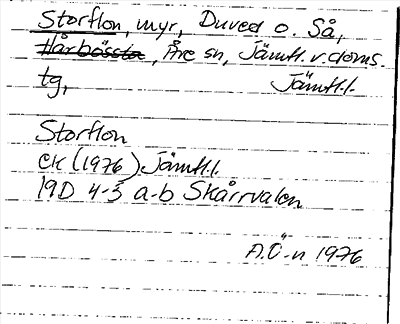 Storflon, myr, Duved o. Så,
Hårbössta, Åre sn, Jämtl. v. doms.
tg, Jämtl.l.
Storflon
EK (1976) Jämtl.l.
19D 4-3 a-b Skårrvalen
A.Ö-n 1976